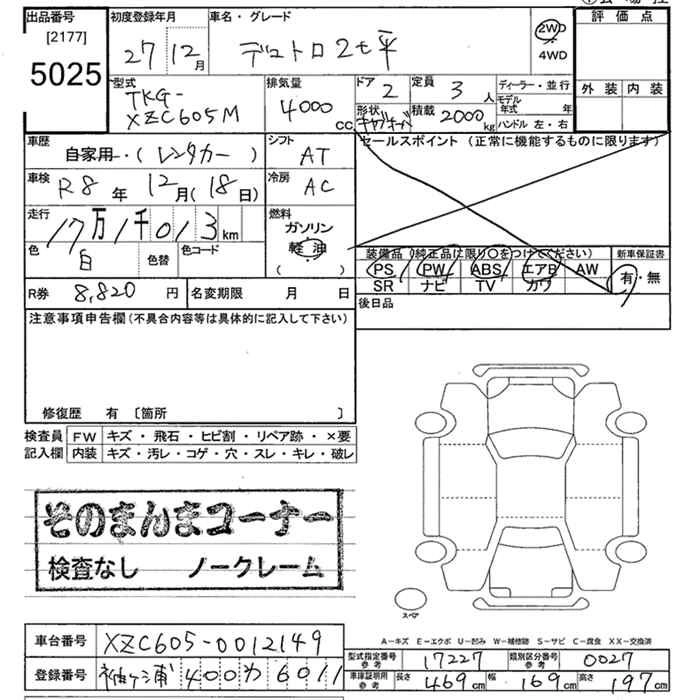 出品番号
[2177]
5025
初度登録年月
27 12月
車名・グレード
デュトロ2t平
2WD
4WD
評価点
外装 内装
型式
TKG-
XZC605M
排気量
4000
cc
ドア 2
定員 3人
形状 キャブオーバ
積載 2000kg
ディーラー・並行
モデル年式 年
ハンドル 左・右
車歴
自家用・(レンタカー)
シフト
AT
セールスポイント(正常に機能するものに限ります)
車検
R8年 12月(18日)
冷房
AC
走行
17万1千013km
燃料
ガソリン
軽油
( )
色
白
色替
色コード
装備品(純正品に限り○をつけてください)
PS PW ABS エアB AW
SR ナビ TV カワ
新車保証書
有・無
R券 8,820円
名変期限 月 日
後日品
注意事項申告欄(不具合内容等は具体的に記入して下さい)
修復歴 有 〔箇所 〕
検査員記入欄
FW キズ・飛石・ヒビ割・リペア跡・×要
内装 キズ・汚レ・コゲ・穴・スレ・キレ・破レ
そのまんまコーナー
検査なし ノークレーム
スペア
A-キズ E-エクボ U-凹み W-補修跡 S-サビ C-腐食 XX-交換済
車台番号 XZC605-0012149
型式指定番号 参考 17227
類別区分番号 参考 0027
登録番号 袖ヶ浦 400 わ 6011
車庫証明用 参考 長さ 469cm 幅 169cm 高さ 197cm